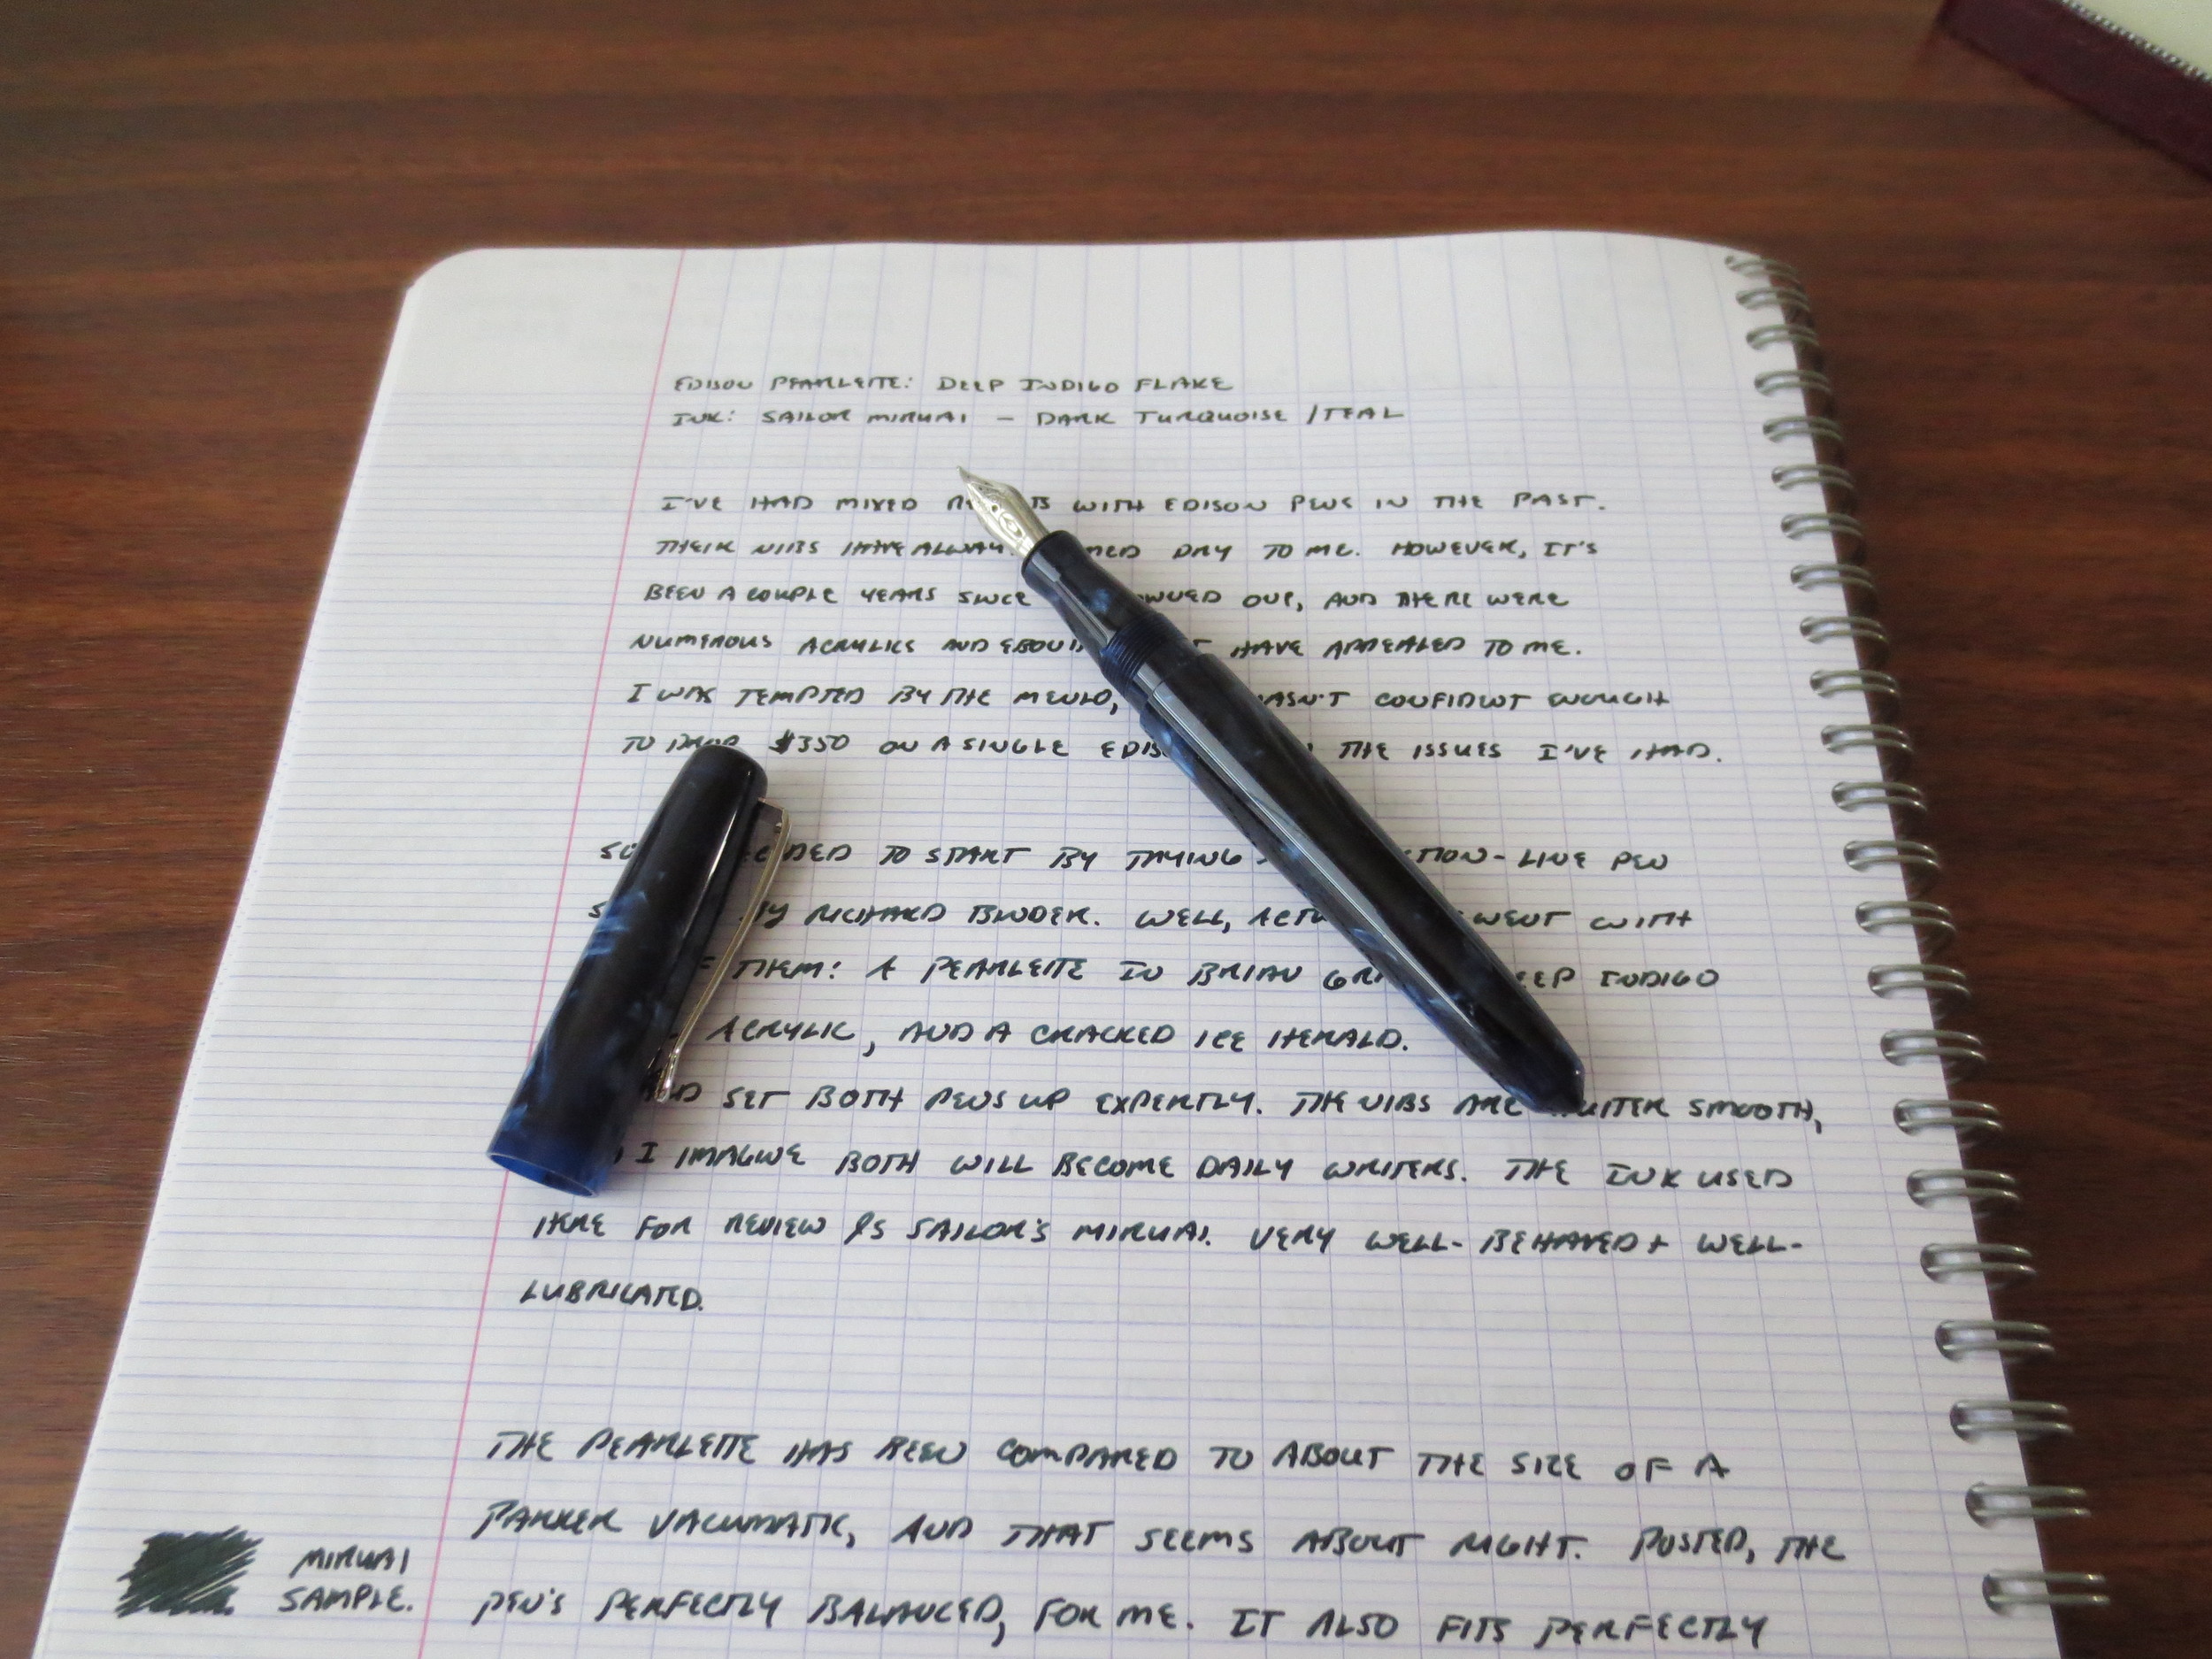 EDISON PEARLETTE: DEEP INDIGO FLAKE
INK: SAILOR MIRUAI – DARK TURQUOISE / TEAL
I'VE HAD MIXED WITH EDISON PENS IN THE PAST.
THEIR NIBS HAVE DRY TO ME. HOWEVER, IT'S
BEEN A COUPLE YEARS SINCE OUP, AND THERE WERE
NUMEROUS ACRYLICS AND HAVE APPEALED TO ME.
I WAS TEMPTED BY THE MENLO, CONFIDNT ENOUGH
TO DROP $350 ON A SINGLE THE ISSUES I'VE HAD.
TO START BY TRYING - LINE PEN
RICHARD BINDER. WELL, WENT WITH
THEM: A PEARLETTE IN BRIAN INDIGO
ACRYLIC, AND A CRACKED ICE HERALD.
SET BOTH PENS UP EXPERTLY. THE NIBS ARE SMOOTH,
I IMAGINE BOTH WILL BECOME DAILY WRITERS. THE INK USED
HERE FOR REVIEW IS SAILOR'S MIRUAI. VERY WELL-BEHAVED + WELL-
LUBRICATED.
THE PEARLETTE HAS BEEN COMPARED TO ABOUT THE SIZE OF A
PARKER VACUMATIC, AND THAT SEEMS ABOUT RIGHT. POSTED, THE
PEN'S PERFECTLY BALANCED, FOR ME. IT ALSO FITS PERFECTLY
MIRUAI
SAMPLE.